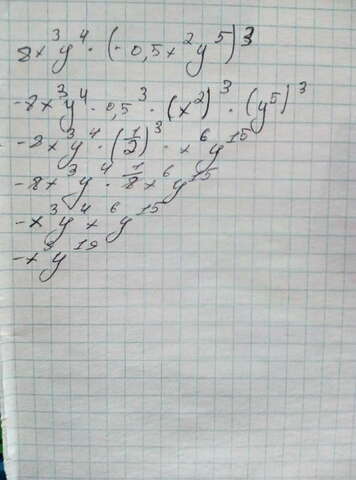 8x³y⁴ · (-0,5x²y⁵)³
-8x³y⁴ · 0,5³ · (x²)³ · (y⁵)³
-8x³y⁴ · (1/2)³ · x⁶y¹⁵
-8x³y⁴ · 1/8 x⁶y¹⁵
-x³y⁴x⁶y¹⁵
-x⁹y¹⁹